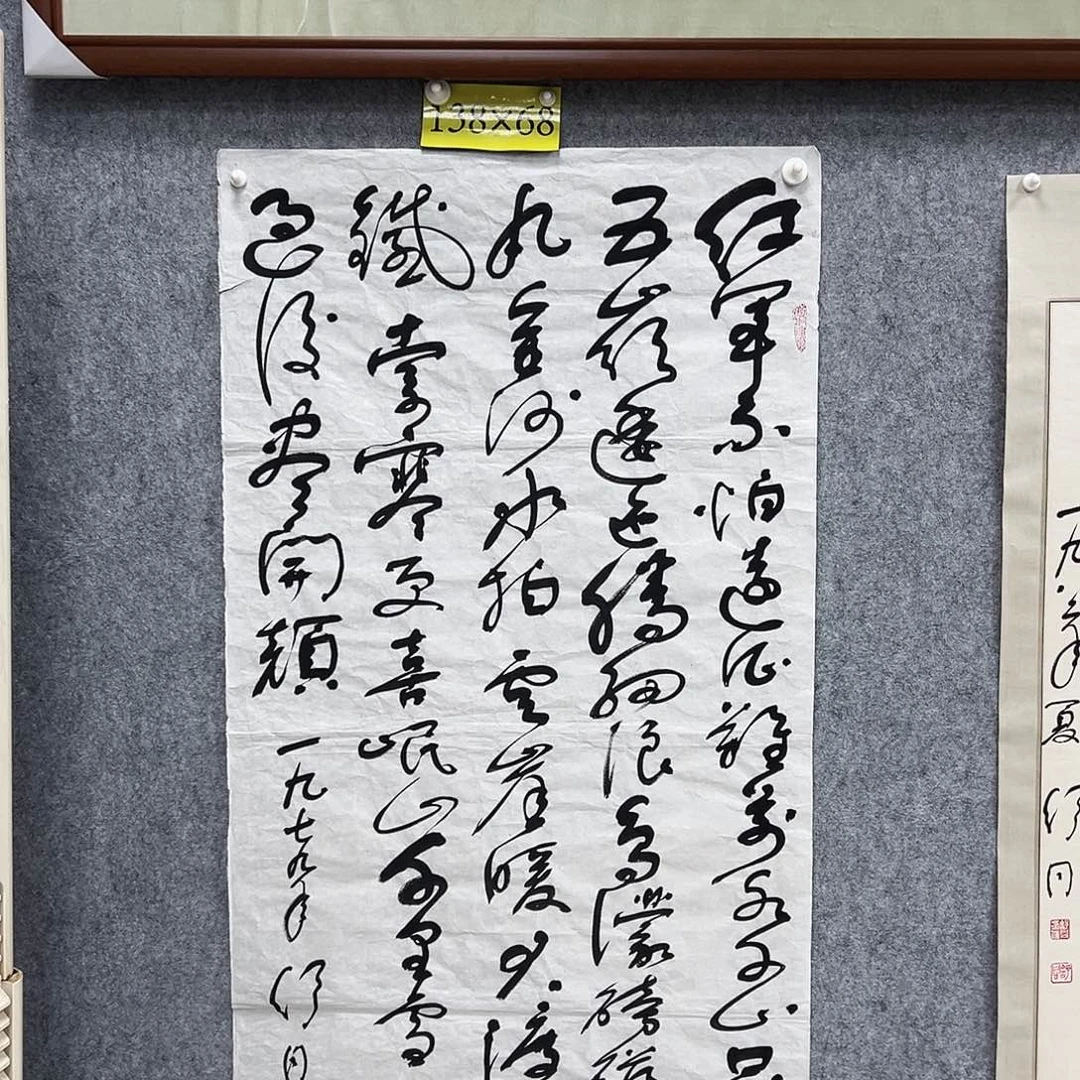 138×68
紅軍不怕遠征難萬水千山只
五嶺逶迤騰細浪烏濛磅礴
丸金沙水拍雲崖暖大渡
鐵索寒更喜岷山千里雪
過後盡開顏
一九七九年 舒同
一九年夏 舒同